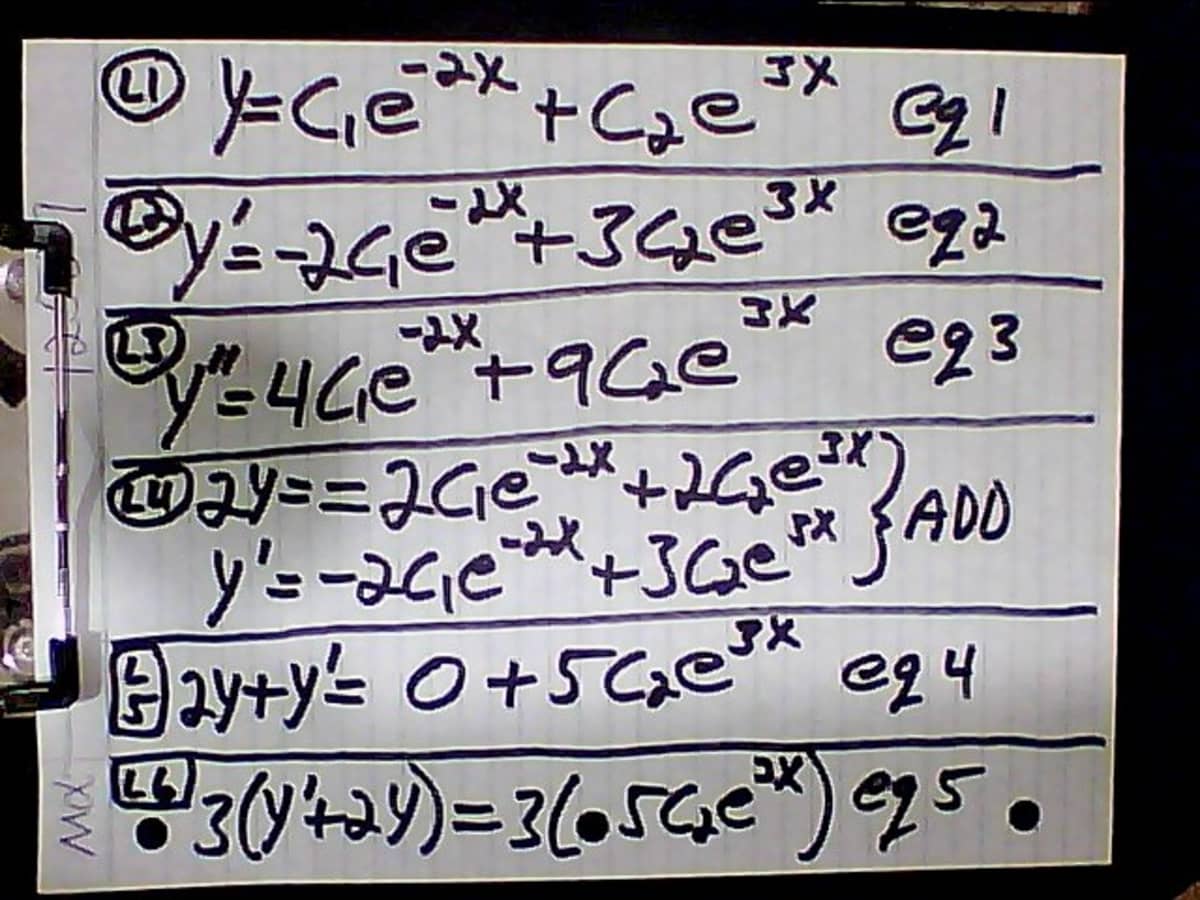 L1 y=C₁e⁻²ˣ+C₂e³ˣ eq1
L2 y'=-2C₁e⁻²ˣ+3C₂e³ˣ eq2
L3 y"=4C₁e⁻²ˣ+9C₂e³ˣ eq3
L4 2y==2C₁e⁻²ˣ+2C₂e³ˣ } ADD
y'=-2C₁e⁻²ˣ+3C₂e³ˣ
L5 2y+y'=0+5C₂e³ˣ eq4
L6 3(y'+2y)=3(•5C₂e³ˣ) eq5.